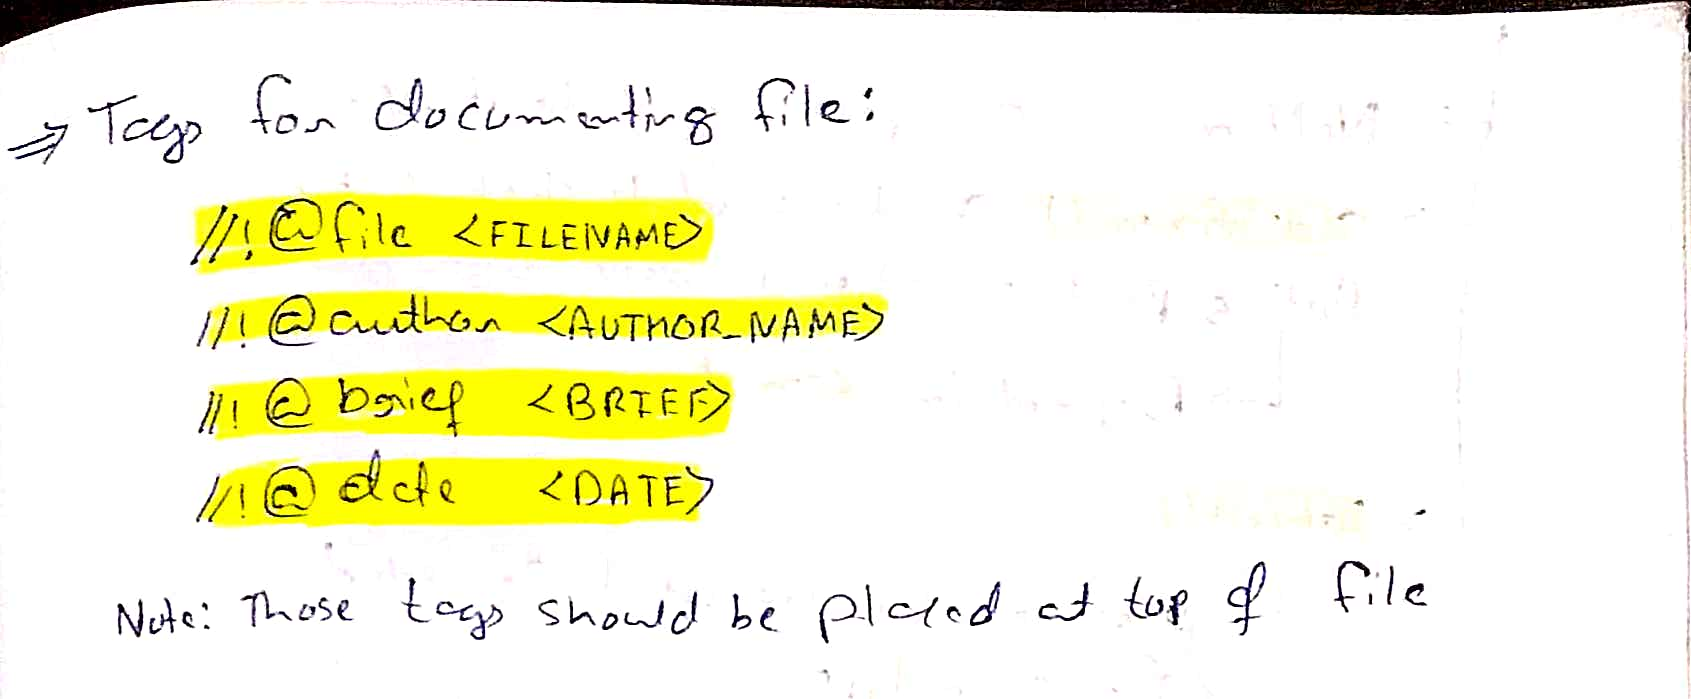 ⇒ Tags for documenting file:
//! @file <FILENAME>
//! @author <AUTHOR_NAME>
//! @brief <BRIEF>
//! @date <DATE>
Note: Those tags should be placed at top of file